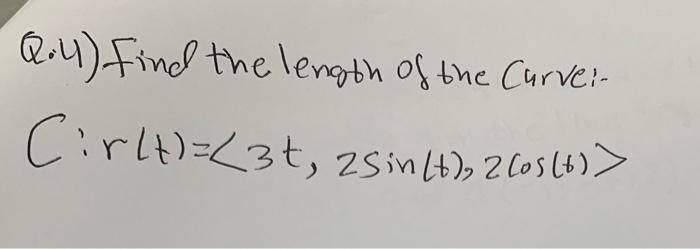 Q.4) Find the length of the Curve:-
C: r(t)=<3t, 2Sin(t), 2Cos(t)>